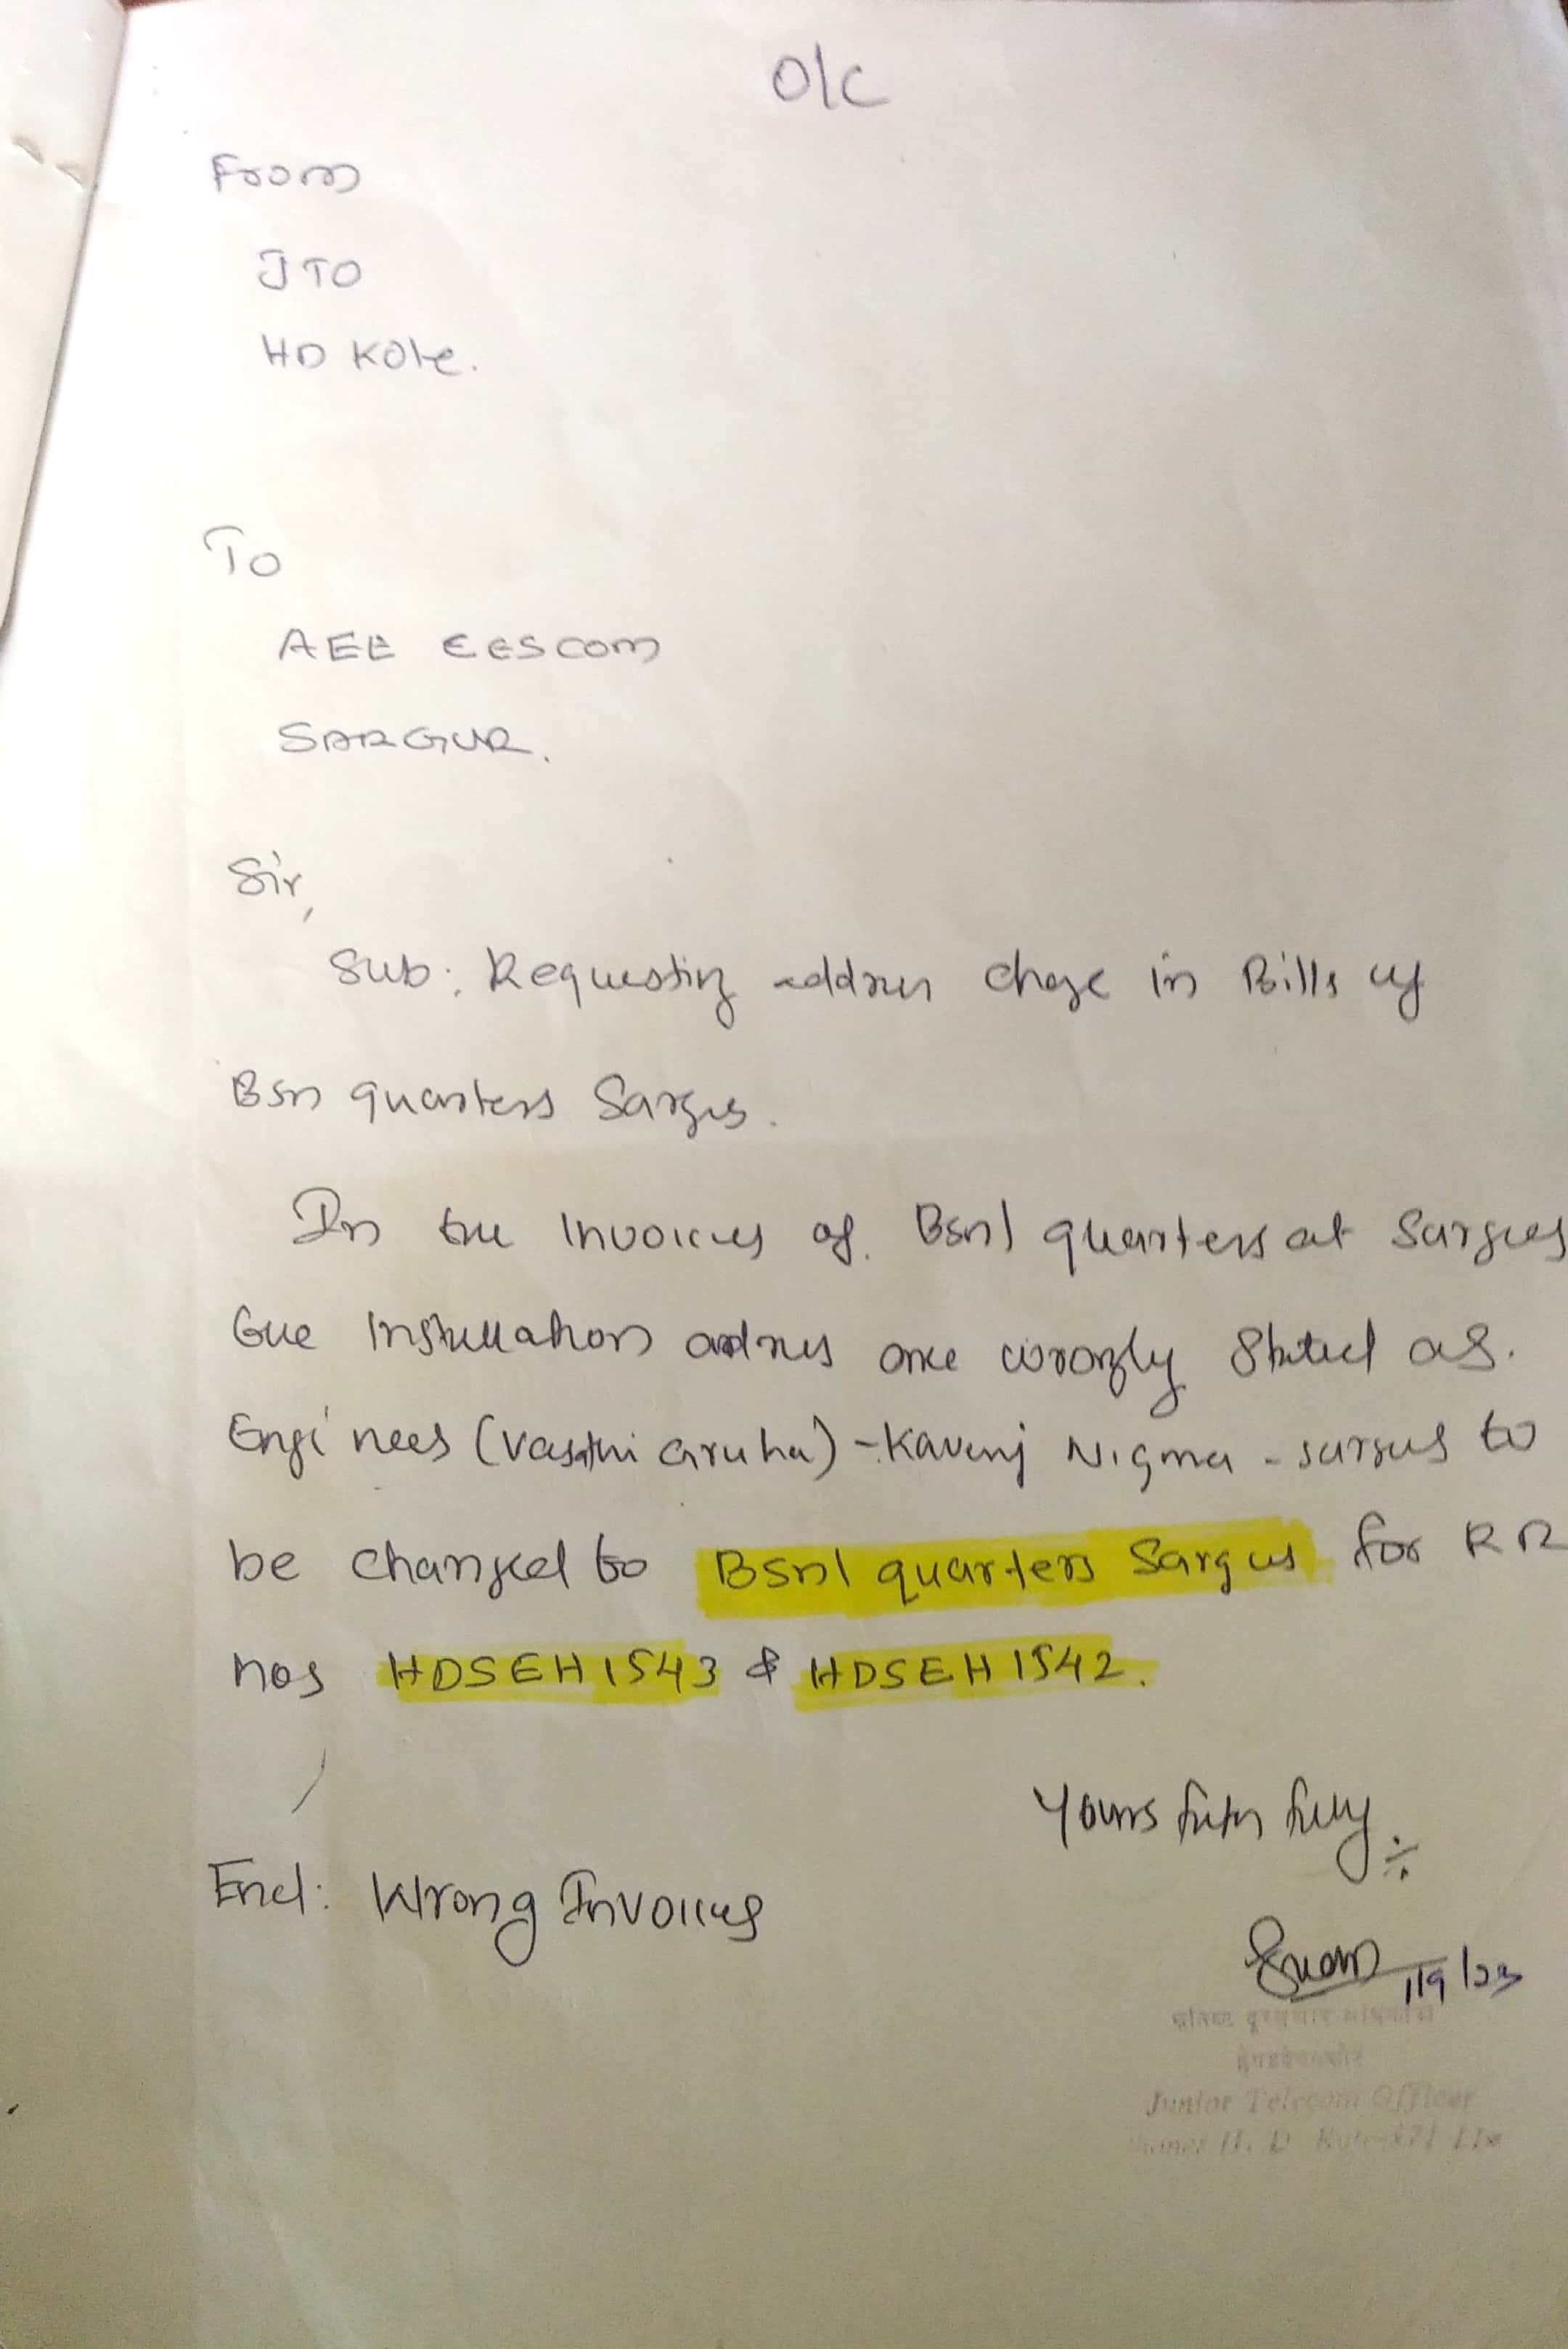 O/C
From
JTO
HD Kote.
To
AEE CESCOM
SARGUR.
Sir,
Sub: Requesting address change in Bills of
Bsnl quarters Sargur.
In the Invoices of Bsnl quarters at Sargur
the Installation address are wrongly stated as
Engineer (Vasthi Gruha) - Kaveri Nigma - sargur to
be changed to Bsnl quarters Sargur for RR
nos HDSEH1543 & HDSEH1542.
Yours faithfully
Encl: Wrong Invoices
1/9/23
Junior Telecom Officer
H. D. Kote-571